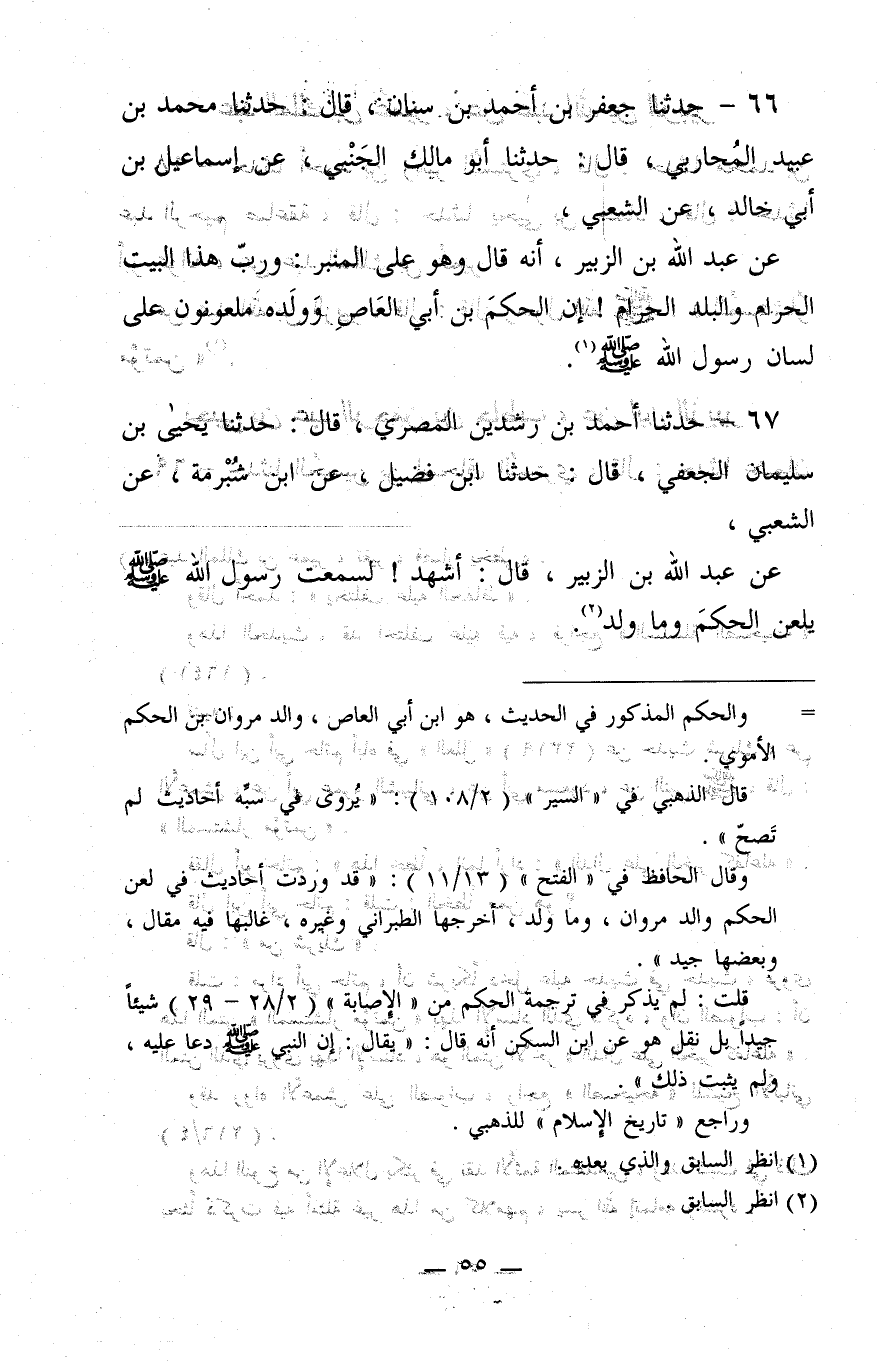 ٦٦ - حدثنا جعفر بن أحمد بن سنان ، قال : حدثنا محمد بن
عبيد المُحاربي ، قال : حدثنا أبو مالك الجَنْبي ، عن إسماعيل بن
أبي خالد ، عن الشعبي ،
عن عبد الله بن الزبير ، أنه قال وهو على المنبر : وربّ هذا البيت
الحرام والبلد الحرام ! إن الحكمَ بن أبي العَاصِ وَولَده ملعونون على
لسان رسول الله ﷺ(١).
٦٧ - حدثنا أحمد بن رشدين المصري ، قال : حدثنا يَحيىٰ بن
سليمان الجعفي ، قال : حدثنا ابن فضيل ، عن ابن شُبْرمة ، عن
الشعبي ،
عن عبد الله بن الزبير ، قال : أشهد ! لسمعت رسول الله ﷺ
يلعن الحكمَ وما ولد(٢).
= والحكم المذكور في الحديث ، هو ابن أبي العاص ، والد مروان بن الحكم
الأموي .
قال الذهبي في « السير » ( ١٠٨/٢ ) : « يُروىٰ في سبِّه أحاديث لم
تَصحّ » .
وقال الحافظ في « الفتح » ( ١١/١٣ ) : « قد وردت أحاديث في لعن
الحكم والد مروان ، وما ولد ، أخرجها الطبراني وغيره ، غالبها فيه مقال ،
وبعضها جيد » .
قلت : لم يذكر في ترجمة الحكم من « الإصابة » ( ٢٨/٢ - ٢٩ ) شيئاً
جيداً بل نقل هو عن ابن السكن أنه قال : « يقال : إن النبي ﷺ دعا عليه ،
ولم يثبت ذلك » .
وراجع « تاريخ الإسلام » للذهبي .
(١) انظر السابق والذي بعده .
(٢) انظر السابق .
— ٥٥ —